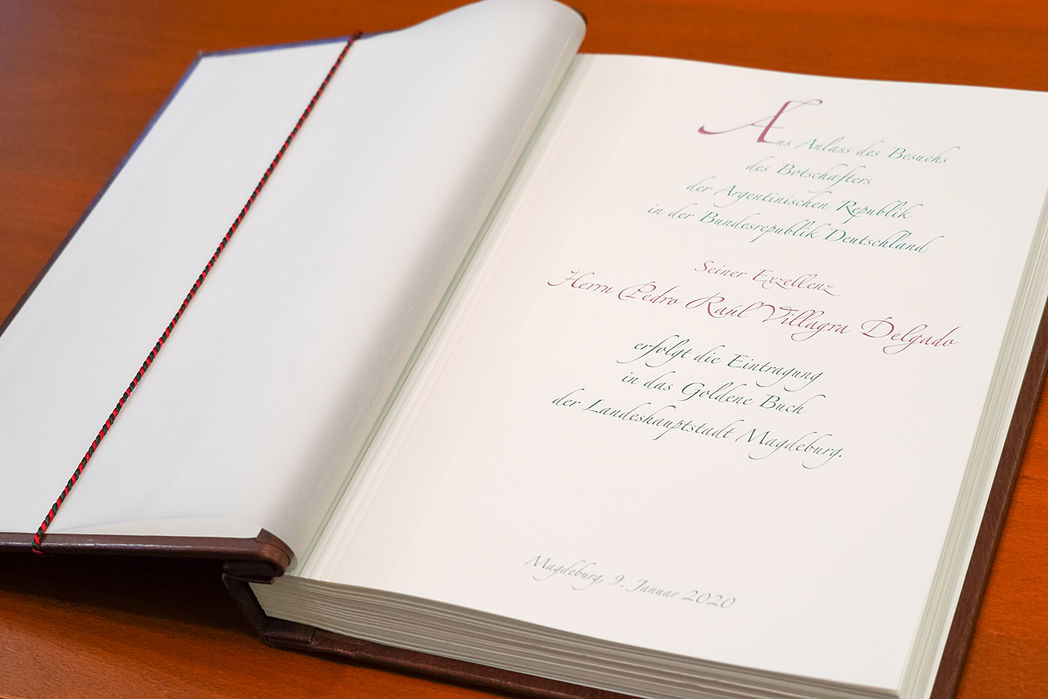 Aus Anlass des Besuchs
des Botschafters
der Argentinischen Republik
in der Bundesrepublik Deutschland
Seiner Exzellenz
Herrn Pedro Raúl Villagra Delgado
erfolgt die Eintragung
in das Goldene Buch
der Landeshauptstadt Magdeburg.
Magdeburg, 9. Januar 2020